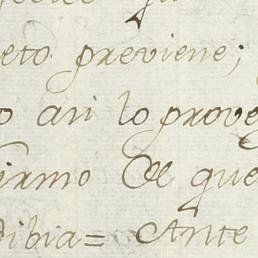 eto previene;
o asi lo prove
irmo De que
dibia= Ante